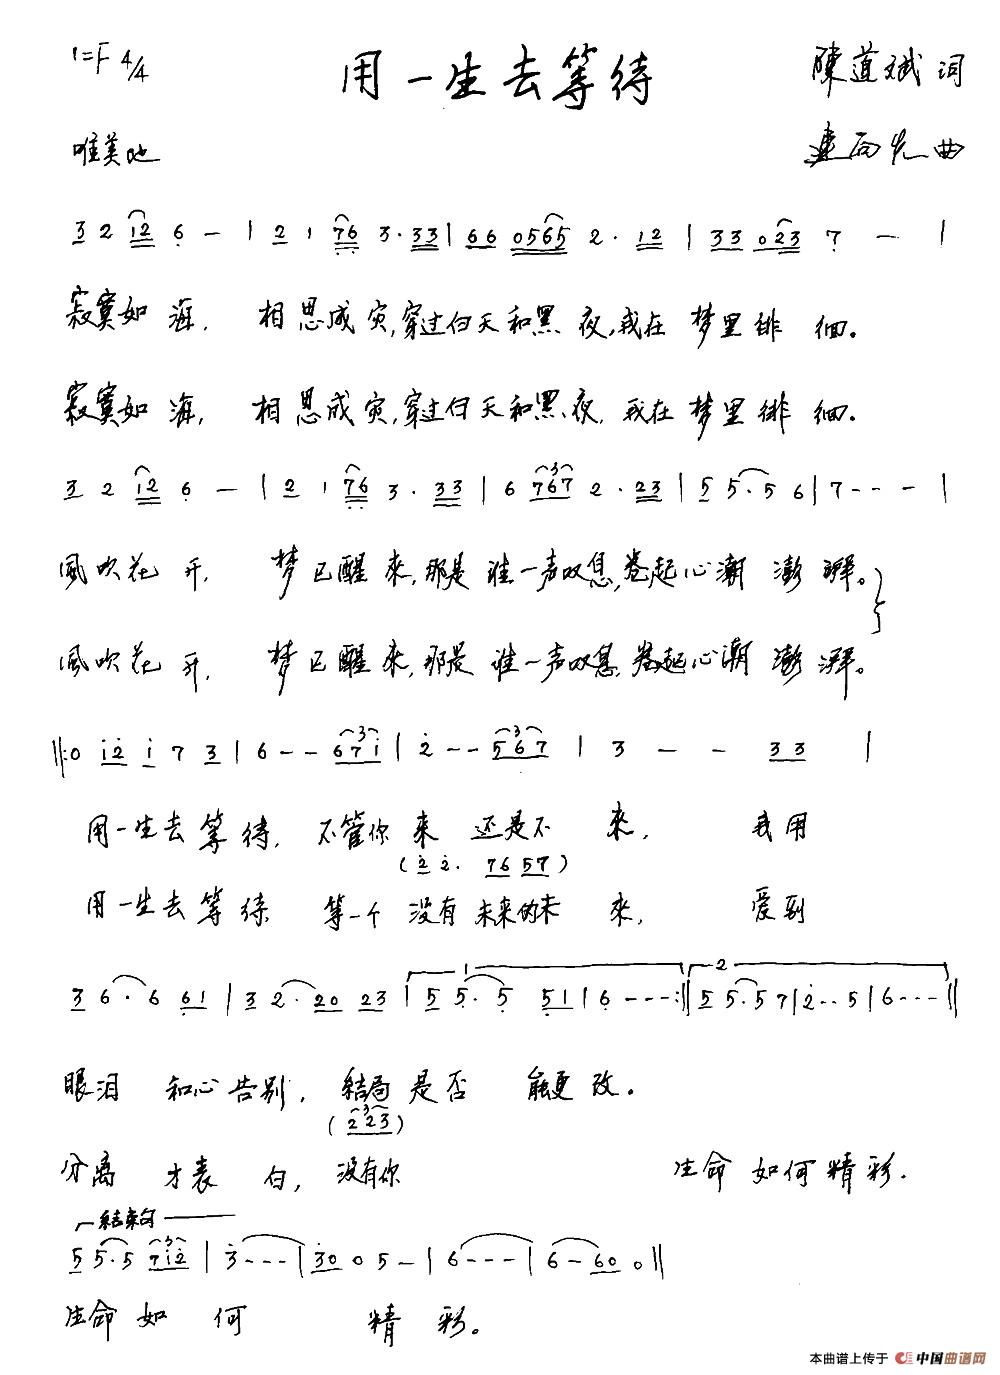 1=F 4/4
用一生去等待
陳道斌 词
唯美地
曲
3 2 12 6 - | 2 1 76 3. 33 | 66 0565 2. 12 | 33 023 7 - |
寂寞如海, 相思成灾,穿过白天和黑夜,我在梦里徘徊。
寂寞如海, 相思成灾,穿过白天和黑夜,我在梦里徘徊。
3 2 12 6 - | 2 1 76 3. 33 | 6 767 2. 23 | 5 5. 5 6 | 7 - - - |
風吹花开, 梦已醒来,那是谁一声叹息,卷起心潮澎湃。
風吹花开, 梦已醒来,那是谁一声叹息,卷起心潮澎湃。
‖: 0 12 1 7 3 | 6 - - 671 | 2 - - 567 | 3 - - 33 |
用一生去等待, 不管你来还是不来, 我用
(2 2. 76 57)
用一生去等待 等一个没有未来的未来, 爱到
3 6. 6 61 | 3 2. 20 23 | 1 5 5. 5 51 | 6 - - - :‖ 2 5 5. 5 7 | 2 - - 5 | 6 - - - ‖
眼泪和心告别, 结局是否能更改。
(223)
分离才表白, 没有你 生命如何精彩.
结束句
5 5. 5 712 | 3 - - - | 30 0 5 - | 6 - - - | 6 - 60 0 ‖
生命如何精彩。
本曲谱上传于 中国曲谱网